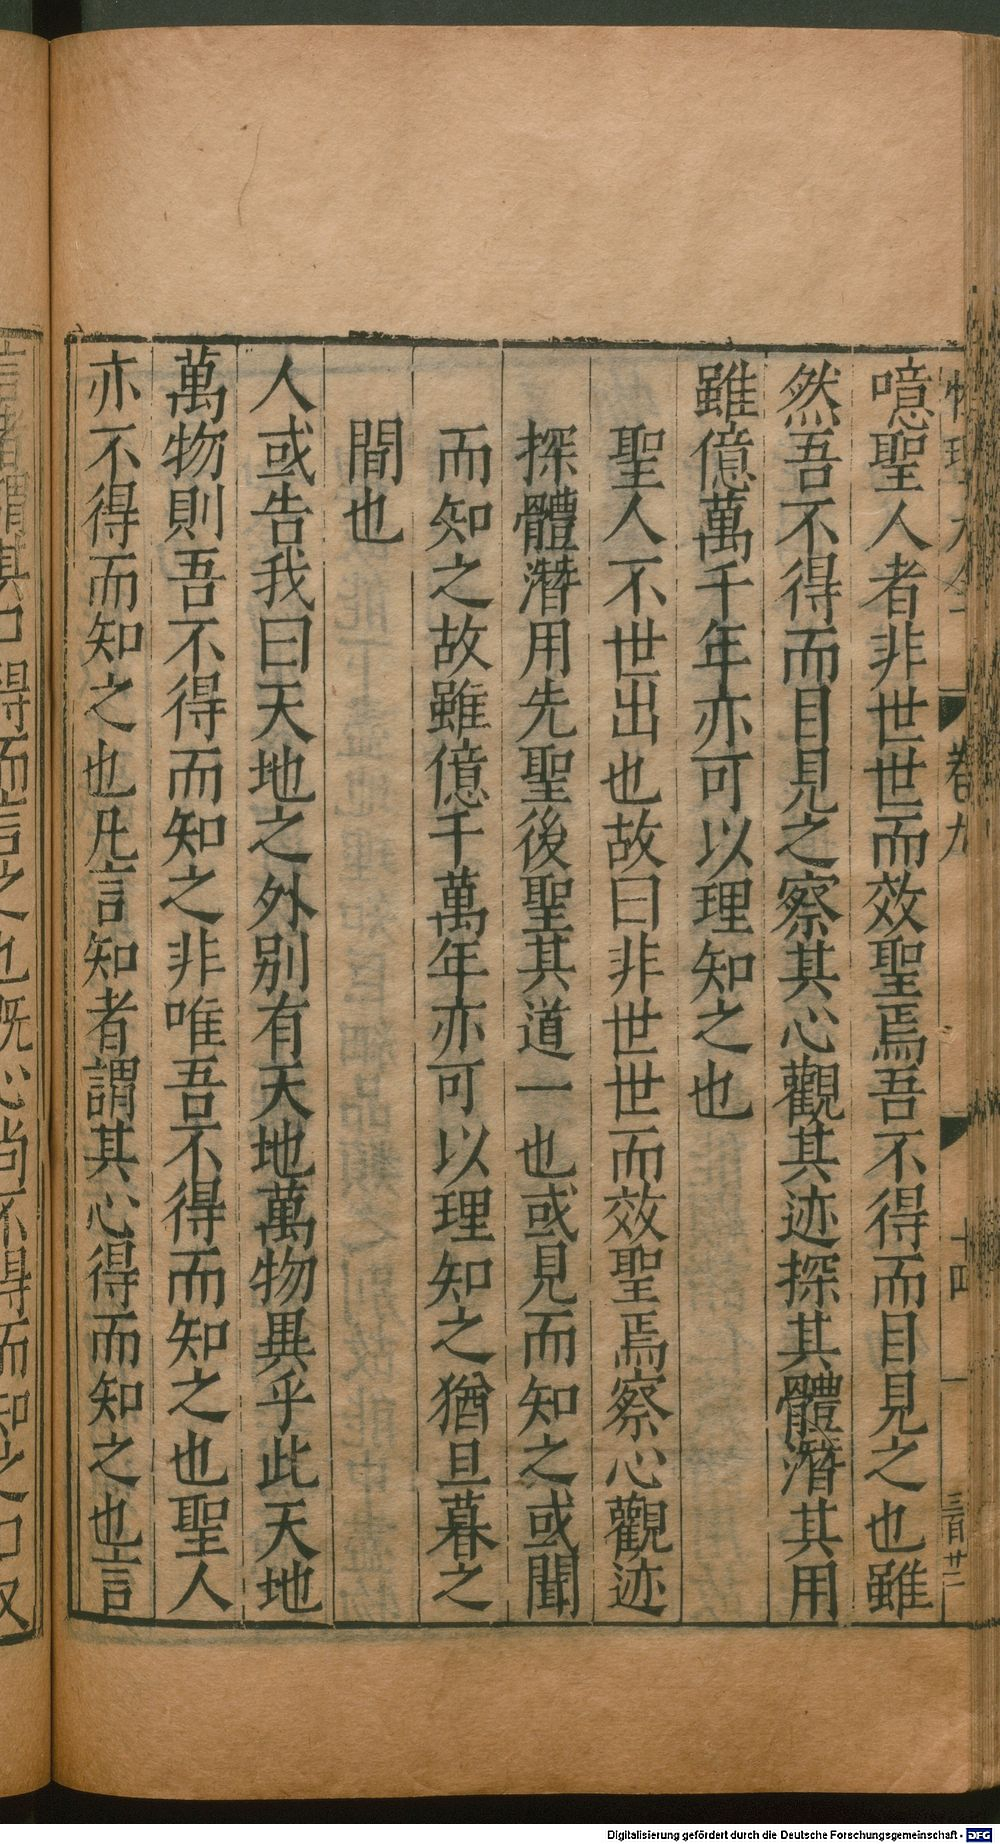 卷九
十四
噫聖人者非世世而效聖焉吾不得而目見之也雖
然吾不得而目見之察其心觀其迹探其體潛其用
雖億萬千年亦可以理知之也
聖人不世出也故曰非世世而效聖焉察心觀迹
探體潛用先聖後聖其道一也或見而知之或聞
而知之故雖億千萬年亦可以理知之猶旦暮之
間也
人或告我曰天地之外別有天地萬物異乎此天地
萬物則吾不得而知之非唯吾不得而知之也聖人
亦不得而知之也凡言知者謂其心得而知之也言
Digitalisierung gefördert durch die Deutsche Forschungsgemeinschaft - DFG